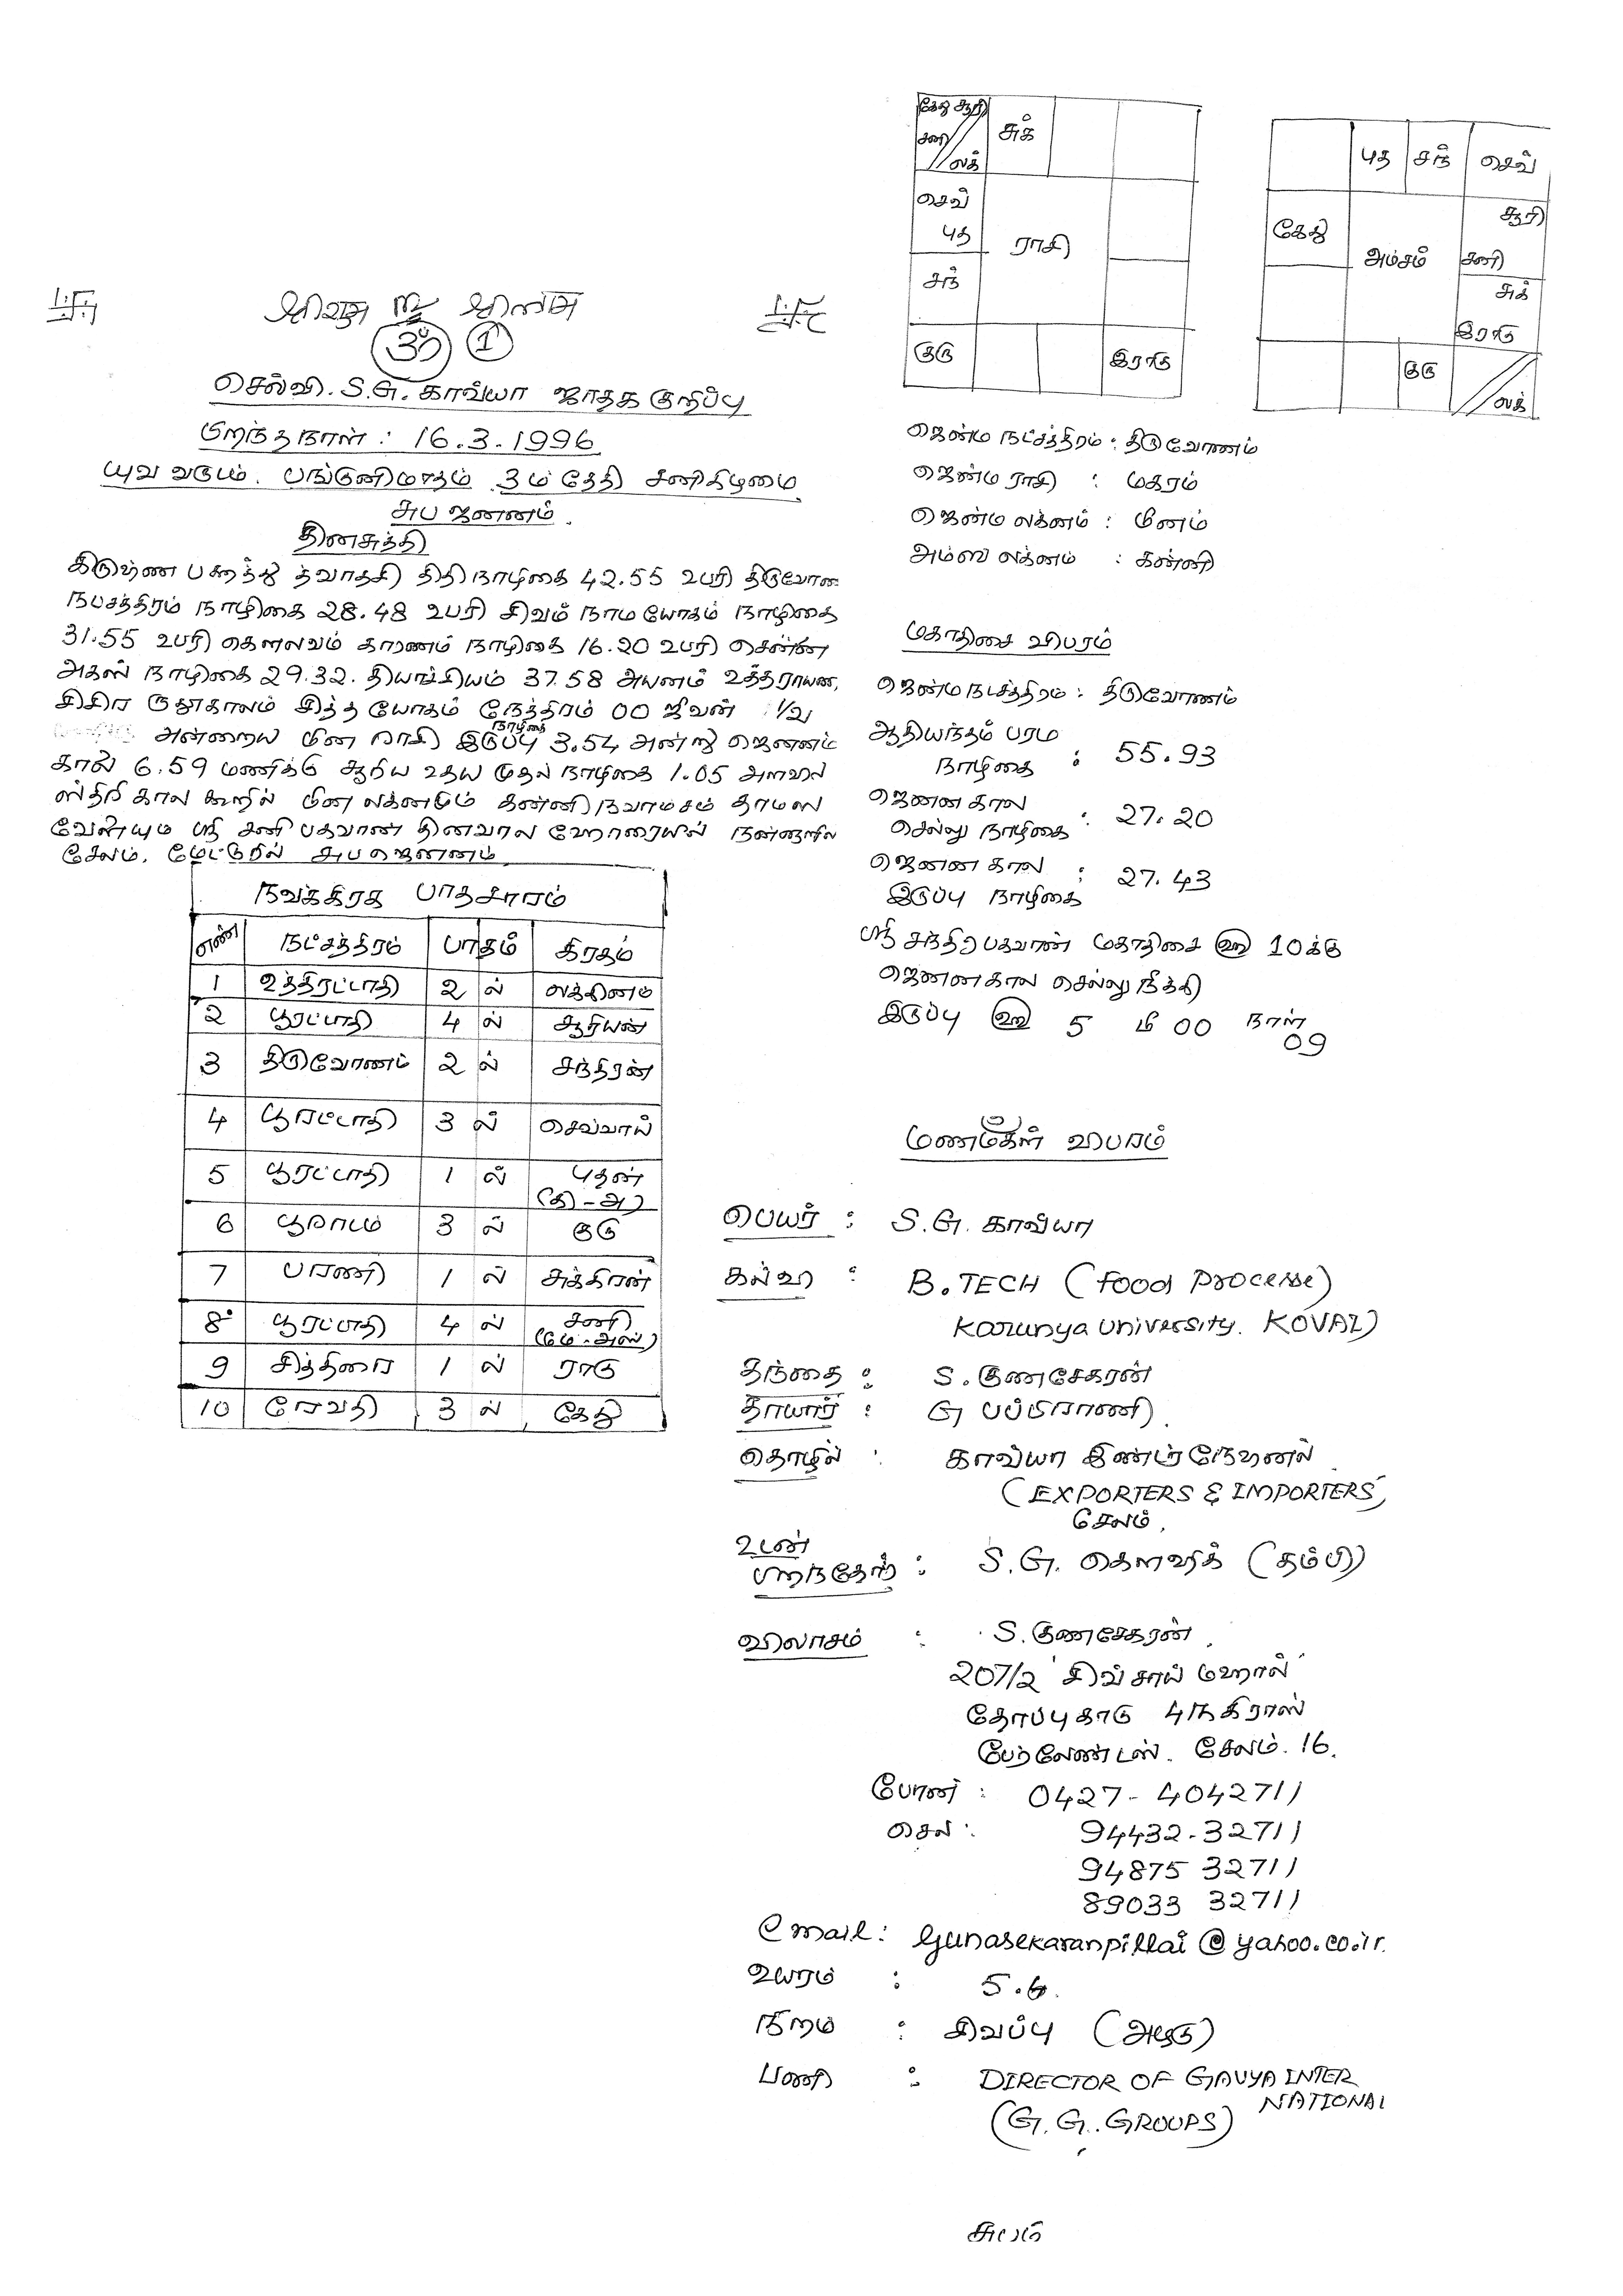 ௐ ①
செல்வி. S.G. காவ்யா ஜாதக குறிப்பு
பிறந்தநாள் : 16.3.1996
யுவ வருடம். பங்குனிமாதம் 3ம் தேதி சனிகிழமை
சுப ஜனனம்.
தினசுத்தி
கிருஷ்ண பக்ஷத்து த்வாதசி திதி நாழிகை 42.55 உபரி திருவோண
நட்சத்திரம் நாழிகை 28.48 உபரி சிவம் நாம யோகம் நாழிகை
31.55 உபரி கௌலவம் கரணம் நாழிகை 16.20 உபரி சென்ன
அகஸ் நாழிகை 29.32. தியாஜ்யம் 37.58 அயனம் உத்தராயண,
சிசிர ருதுகாலம் இந்த யோகம் நேத்திரம் 00 ஜீவன் 1/2
அன்றைய மீன ராசி இருப்பு நாழிகை 3.54 அன்று ஜெனனம்
காலை 6.59 மணிக்கு சூரிய உதய முதல் நாழிகை 1.05 அளவில்
ஸ்திரி கால கூறில் மீன லக்னமும் கன்னி நவாம்சம் தாமஸ
வேளையும் ஸ்ரீ சனி பகவான் தினவார ஹோரையில் நன்னாளில்
சேலம். மேட்டூரில் சுபஜெனனம்
நவக்கிரக பாதசாரம்
எண் நட்சத்திரம் பாதம் கிரகம்
1 உத்திரட்டாதி 2 ல் லக்கினம்
2 பூரட்டாதி 4 ல் சூரியன்
3 திருவோணம் 2 ல் சந்திரன்
4 பூரட்டாதி 3 ல் செவ்வாய்
5 பூரட்டாதி 1 ல் புதன்
(தி-அ)
6 பூராடம் 3 ல் குரு
7 பரணி 1 ல் சுக்கிரன்
8 பூரட்டாதி 4 ல் சனி
(மே-அஸ்)
9 சித்திரை 1 ல் ராகு
10 ரேவதி 3 ல் கேது
கேது சூரி
சனி
லக்
சுக்
செவ்
புத
ராசி
சந்
குரு
இராகு
புத சந் செவ்
கேது
அம்சம்
சூரி
சனி
சுக்
இராகு
குரு
லக்
ஜென்ம நட்சத்திரம் : திருவோணம்
ஜென்ம ராசி : மகரம்
ஜென்ம லக்னம் : மீனம்
அம்ஸ லக்னம் : கன்னி
மகாதிசை விபரம்
ஜென்மநட்சத்திரம் : திருவோணம்
ஆதியந்தம் பரம
நாழிகை : 55.93
ஜெனன கால
செல்லு நாழிகை : 27.20
ஜெனன கால
இருப்பு நாழிகை : 27.43
ஸ்ரீ சந்திர பகவான் மகாதிசை ௵ 10க்கு
ஜெனனகால செல்லு நீக்கி
இருப்பு ௵ 5 மீ 00 நாள்
09
மணமகள் விபரம்
பெயர் : S.G. காவ்யா
கல்வி : B.TECH (Food Processe)
Karunya University. KOVAI)
தந்தை : S. குணசேகரன்
தாயார் : G பப்பிராணி
தொழில் : காவ்யா இண்டர்நேஷனல்
(EXPORTERS & IMPORTERS)
சேலம்.
உடன்
பிறந்தோர் : S.G. கௌஷிக் (தம்பி)
விலாசம் : S. குணசேகரன்
207/2 சிவ்சாய் மஹால்
தோப்புகாடு 4th கிராஸ்
பேர்லேண்டஸ். சேலம். 16.
போன் : 0427-4042711
செல் : 94432-32711
94875 32711
89033 32711
Email: gunasekaranpillai@yahoo.co.in.
உயரம் : 5.6.
நிறம் : சிவப்பு (அழகு)
பணி : DIRECTOR OF GAVYA INTER
NATIONAL
(G.G. GROUPS)
சுபம்